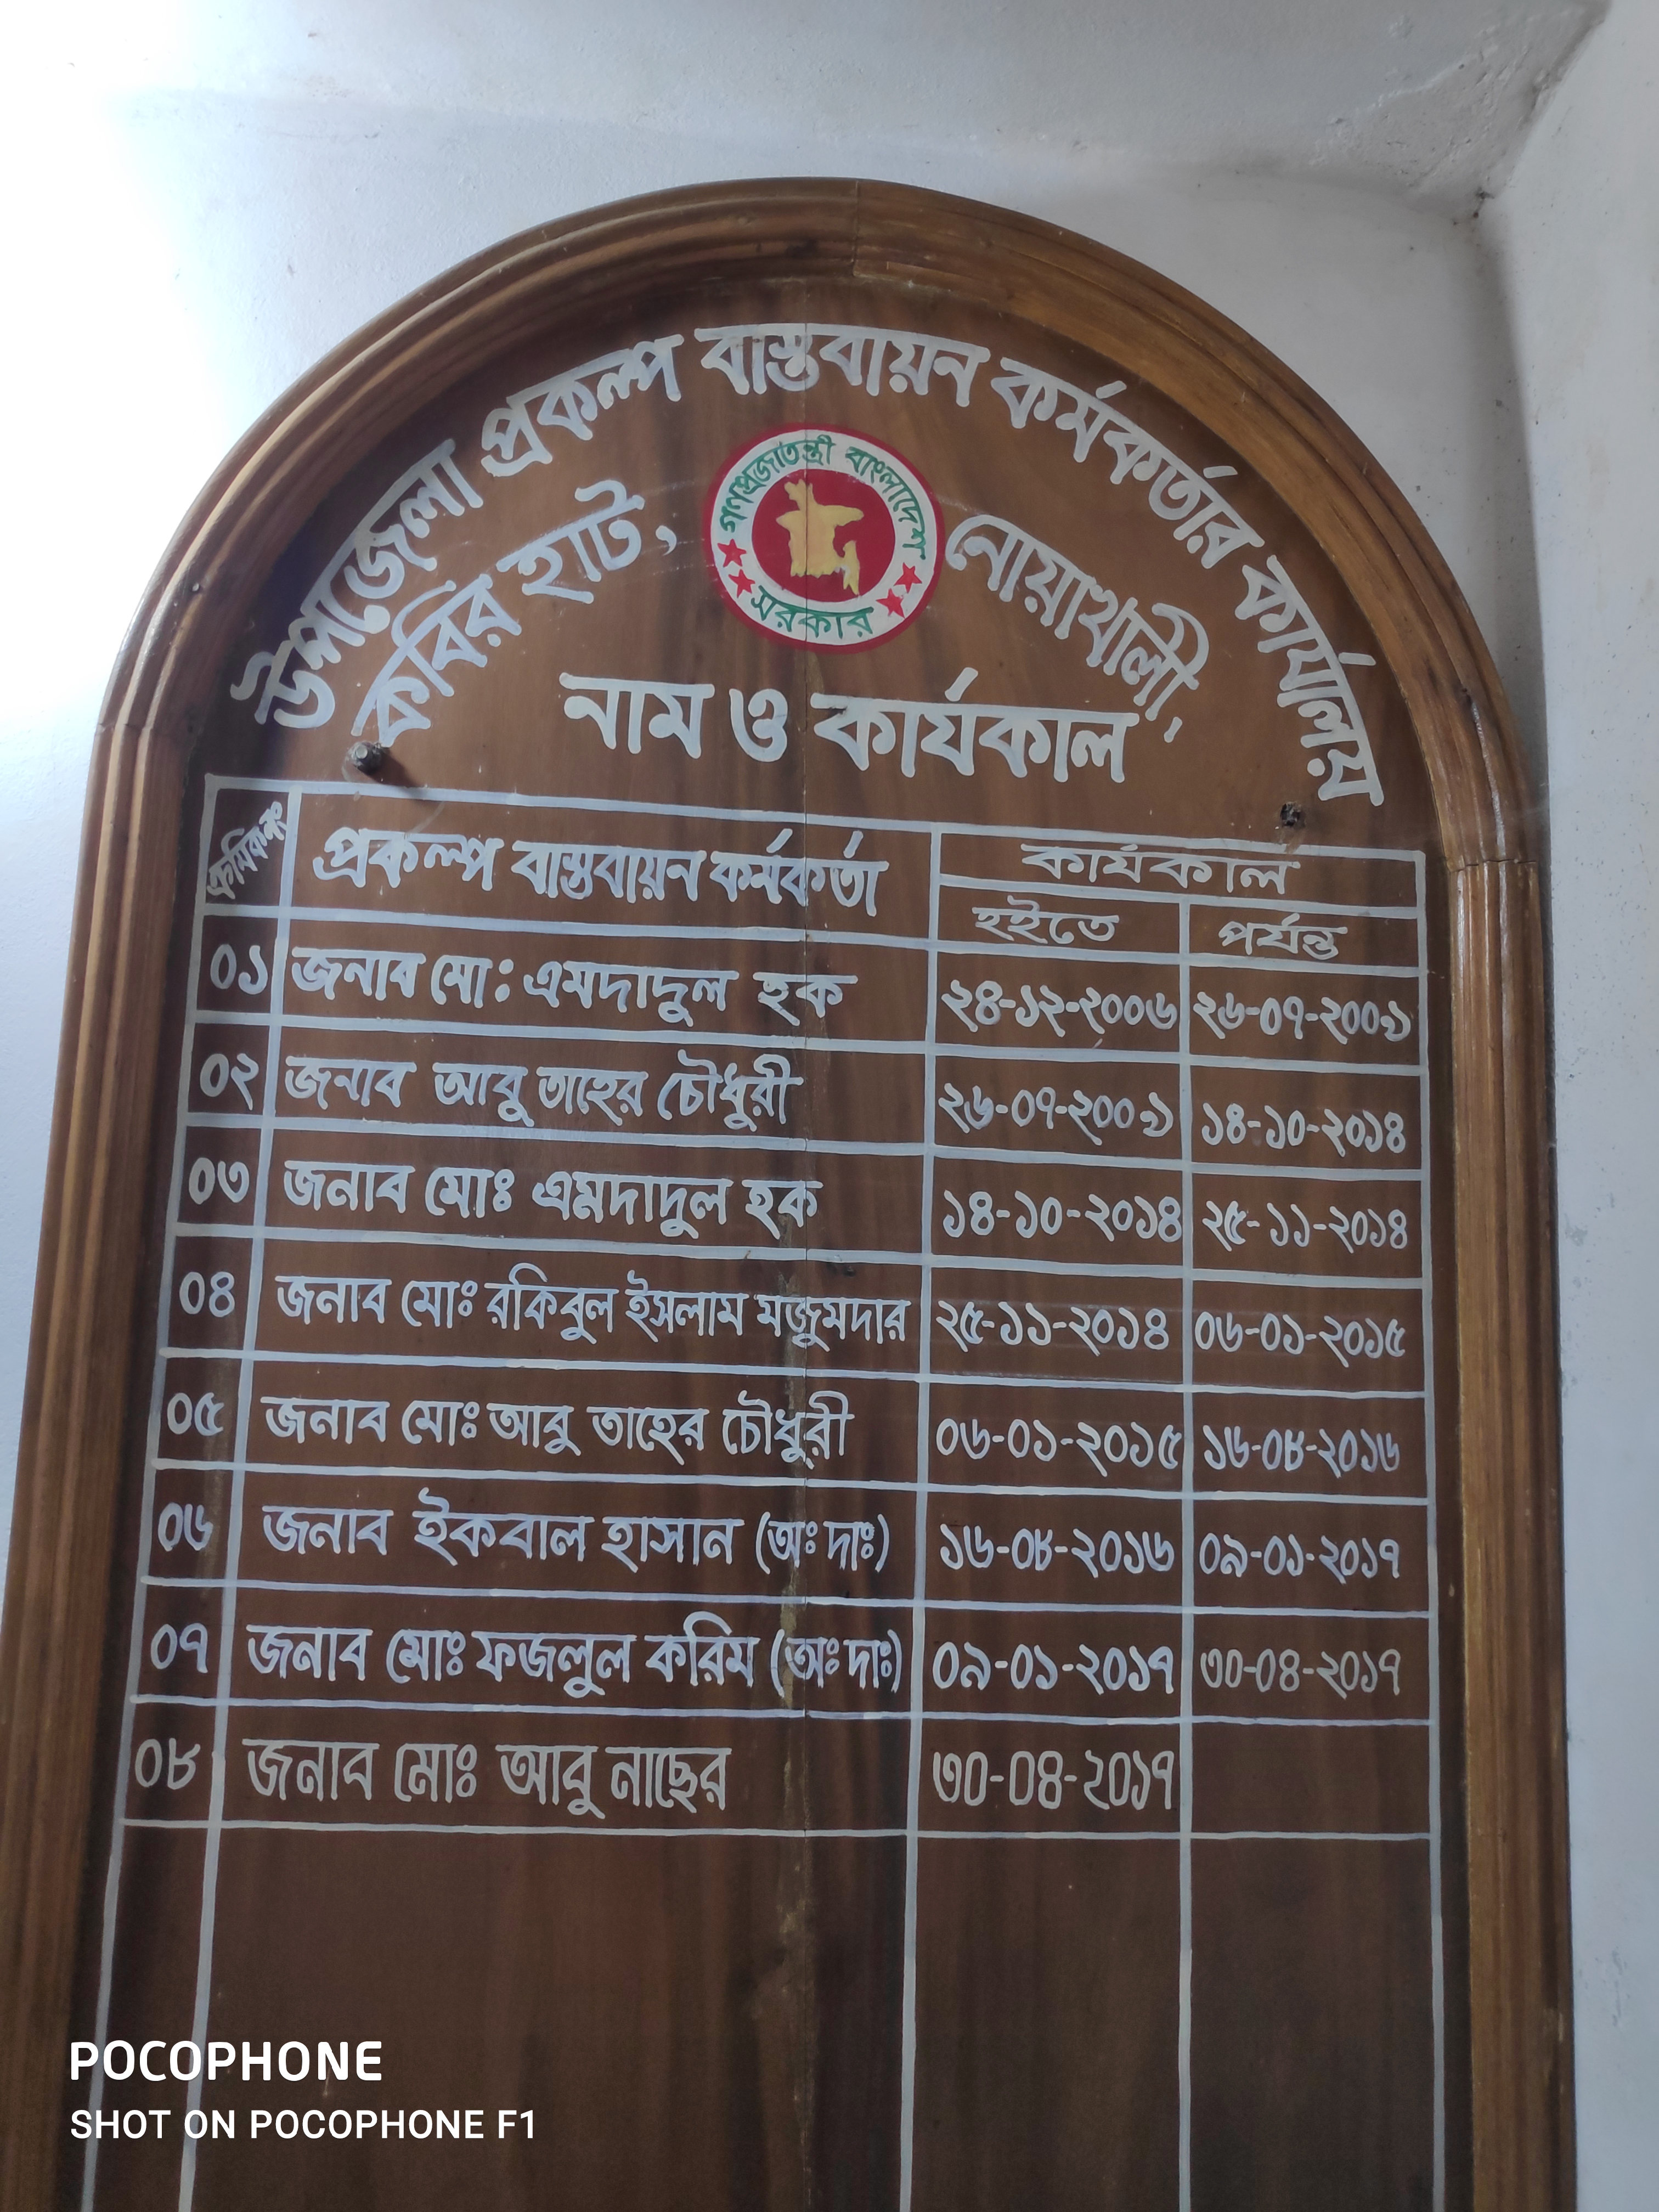 উপজেলা প্রকল্প বাস্তবায়ন কর্মকর্তার কার্যালয়
কবির হাট, নোয়াখালী,
গণপ্রজাতন্ত্রী বাংলাদেশ
সরকার
নাম ও কার্যকাল
ক্রমিক নং প্রকল্প বাস্তবায়ন কর্মকর্তা কার্যকাল
হইতে পর্যন্ত
০১ জনাব মো: এমদাদুল হক ২৪-১২-২০০৬ ২৬-০৭-২০০৯
০২ জনাব আবু তাহের চৌধুরী ২৬-০৭-২০০৯ ১৪-১০-২০১৪
০৩ জনাব মোঃ এমদাদুল হক ১৪-১০-২০১৪ ২৫-১১-২০১৪
০৪ জনাব মোঃ রকিবুল ইসলাম মজুমদার ২৫-১১-২০১৪ ০৬-০১-২০১৫
০৫ জনাব মোঃ আবু তাহের চৌধুরী ০৬-০১-২০১৫ ১৬-০৮-২০১৬
০৬ জনাব ইকবাল হাসান (অঃ দাঃ) ১৬-০৮-২০১৬ ০৯-০১-২০১৭
০৭ জনাব মোঃ ফজলুল করিম (অঃ দাঃ) ০৯-০১-২০১৭ ৩০-০৪-২০১৭
০৮ জনাব মোঃ আবু নাছের ৩০-০৪-২০১৭
POCOPHONE
SHOT ON POCOPHONE F1